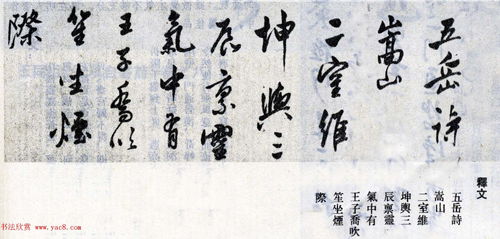 五岳詩
嵩山
二室維
坤輿三
辰稟靈
氣中有
王子喬吹
笙坐煙
際
釋文
五岳詩
嵩山
二室維
坤輿三
辰稟靈
氣中有
王子喬吹
笙坐煙
際
书法欣赏
www.yac8.com